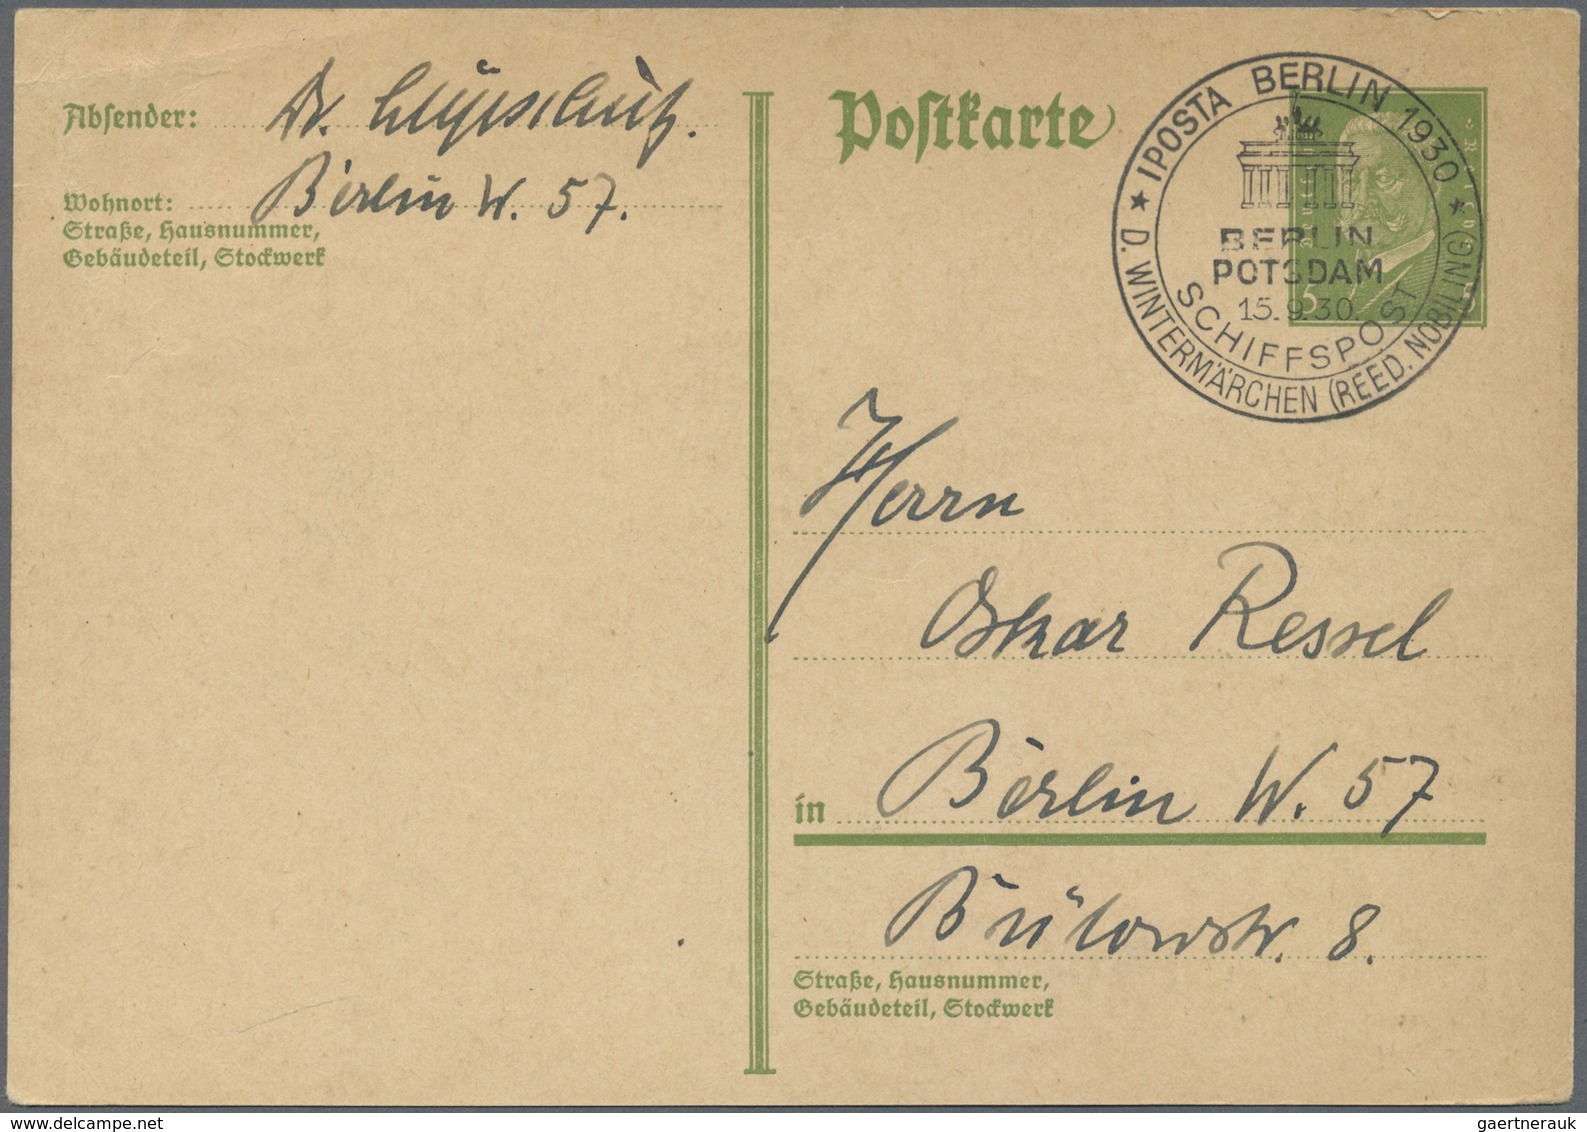 Absender: Dr.
Wohnort: Berlin W. 57.
Straße, Hausnummer,
Gebäudeteil, Stockwerk
Postkarte
★ IPOSTA BERLIN 1930 ★
BERLIN
POTSDAM
15.9.30.
SCHIFFSPOST
D. WINTERMÄRCHEN (REED. NOBILING)
5
Herrn
Oskar Ressel
in Berlin W. 57
Bülowstr. 8.
Straße, Hausnummer,
Gebäudeteil, Stockwerk
gaertnerauk